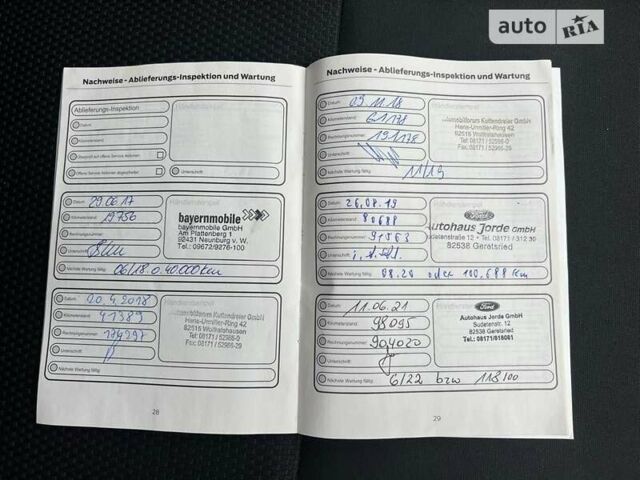 auto RIA
Nachweise - Ablieferungs-Inspektion und Wartung
Ablieferungs-Inspektion
Händlerstempel
Datum
Kilometerstand
Rechnungsnummer
Überprüft auf offene Service Aktionen
Offene Service Aktionen abgearbeitet
Unterschrift
Datum 29.06.17
Kilometerstand 19756
Rechnungsnummer
Unterschrift
Nächste Wartung fällig 06/18 o 40.000 km
bayernmobile
bayernmobile GmbH
Am Plattenberg 1
92431 Neunburg v. W.
Tel.: 09672/9276-100
Datum 20.4.2018
Kilometerstand 41389
Rechnungsnummer 174297
Unterschrift
Nächste Wartung fällig
Automobilforum Kuttendreier GmbH
Hans-Urmiller-Ring 42
82515 Wolfratshausen
Tel 08171 / 52986-0
Fax 08171 / 52986-29
28
Nachweise - Ablieferungs-Inspektion und Wartung
Datum 09.11.18
Kilometerstand 61171
Rechnungsnummer 191178
Unterschrift
Nächste Wartung fällig 11/19
Händlerstempel
Automobilforum Kuttendreier GmbH
Hans-Urmiller-Ring 42
82515 Wolfratshausen
Tel 08171 / 52986-0
Fax: 08171 / 52986-29
Datum 26.08.19
Kilometerstand 80688
Rechnungsnummer 91563
Unterschrift
Nächste Wartung fällig 08.20 oder 100,688 km
Ford
Autohaus Jorde GmbH
Sudetenstraße 12 • Tel. 08171 / 312 30
82538 Geretsried
Datum 11.06.21
Kilometerstand 98095
Rechnungsnummer 904020
Unterschrift
Nächste Wartung fällig 6/22 bzw 118100
Ford
Autohaus Jorde GmbH
Sudetenstr. 12
82538 Geretsried
Tel.: 08171/818081
29